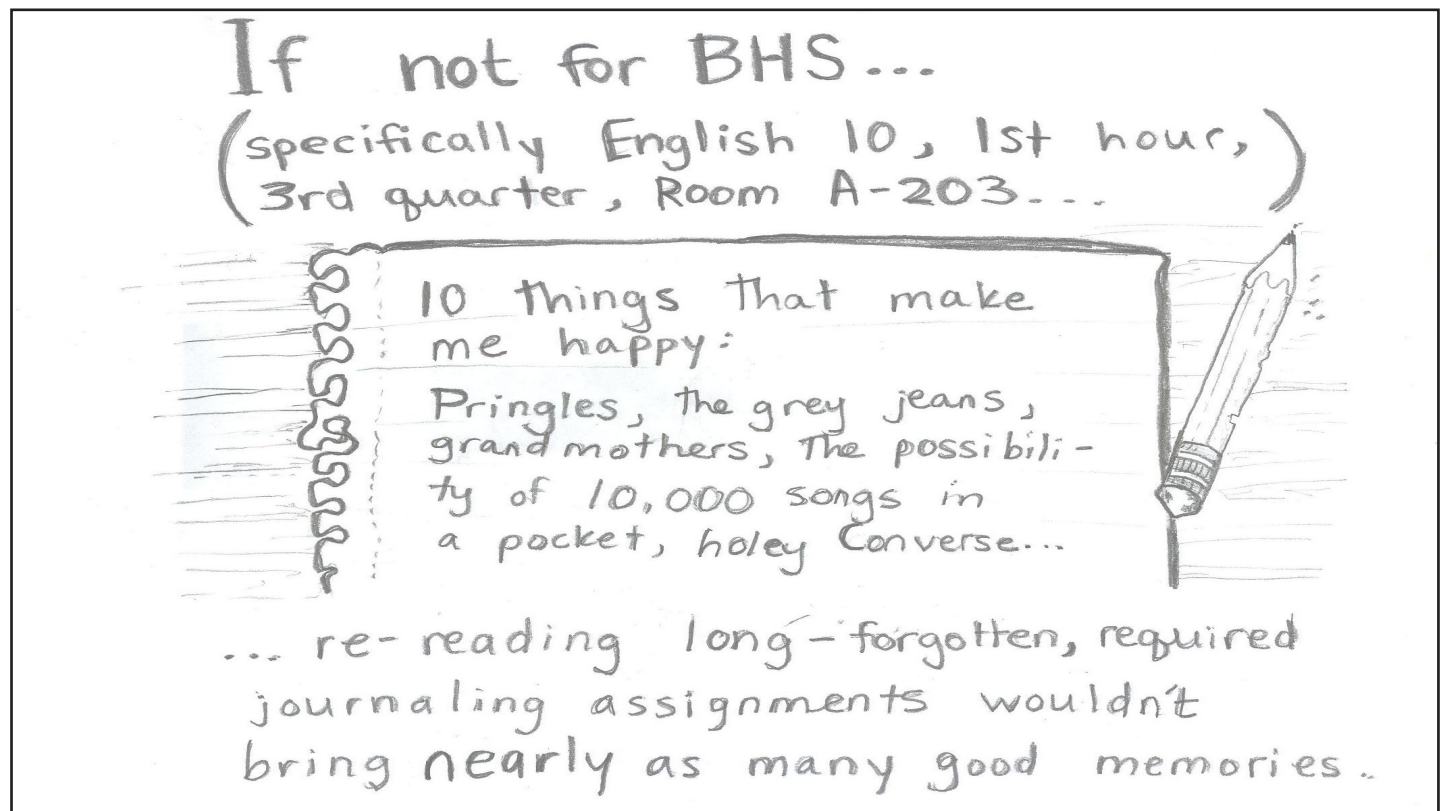 If not for BHS...
(specifically English 10, 1st hour,
3rd quarter, Room A-203...)
10 things that make
me happy:
Pringles, the grey jeans,
grandmothers, the possibili-
ty of 10,000 songs in
a pocket, holey Converse...
... re-reading long-forgotten, required
journaling assignments wouldn't
bring nearly as many good memories.